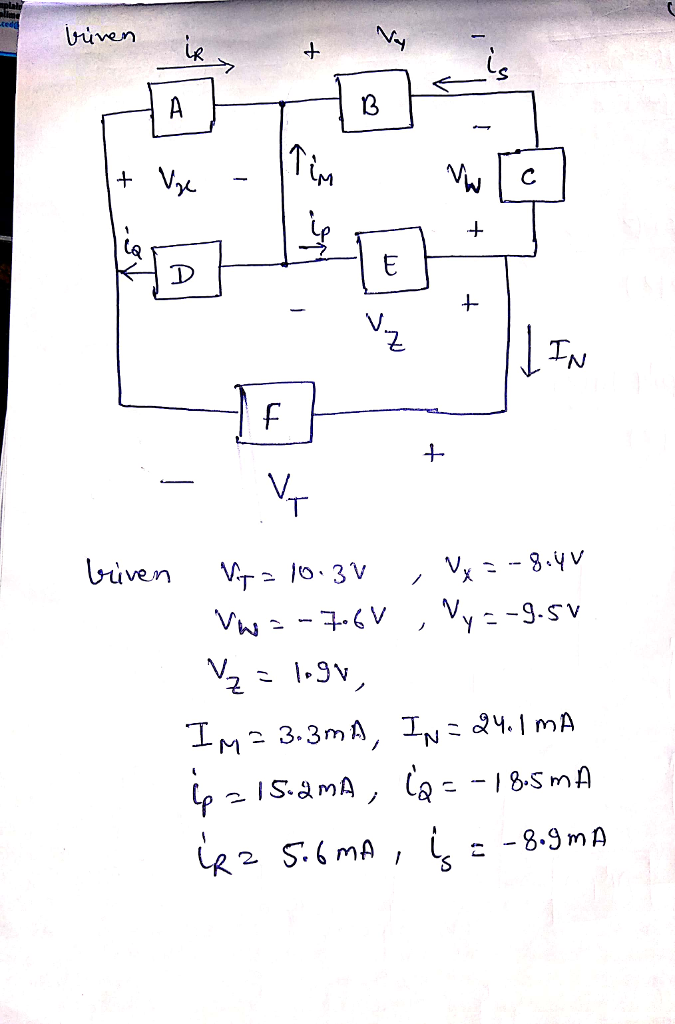 Given
iR + Vy - is
A B
+ Vx - ↑ iM Vw - C +
iQ ip
D E
- Vz +
↓ IN
F
- VT +
Given VT = 10.3V , Vx = -8.4V
Vw = -7.6V , Vy = -9.5V
Vz = 1.9V,
IM = 3.3mA, IN = 24.1mA
ip = 15.2mA, iQ = -18.5mA
iR = 5.6mA, is = -8.9mA